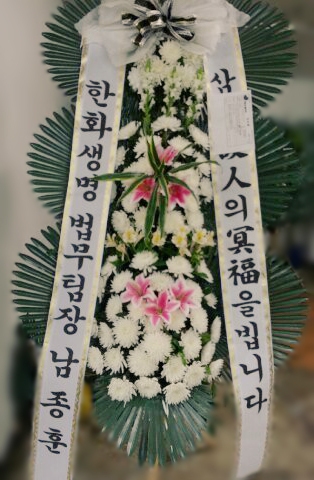 한화생명 법무팀장 남종훈
삼 人의 冥福을 빕니다